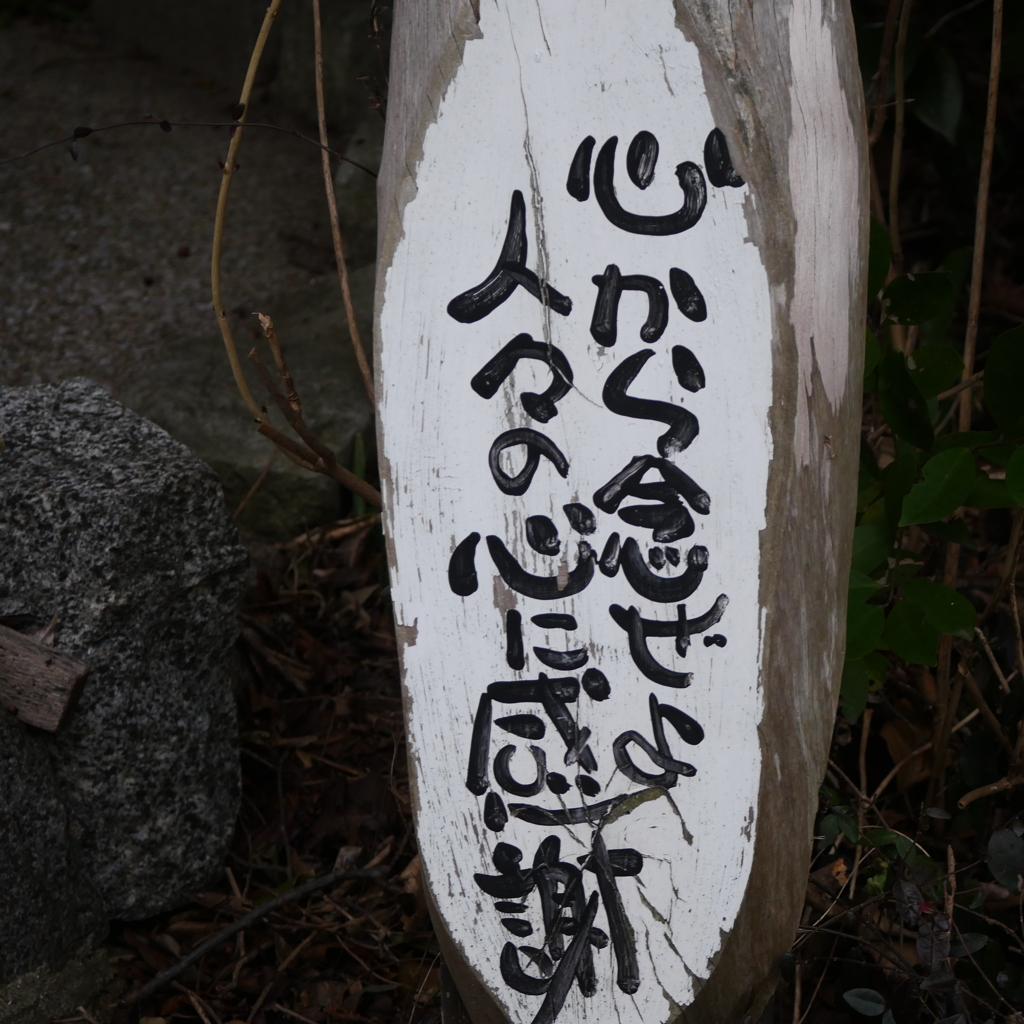 心から念
人々の心に感謝